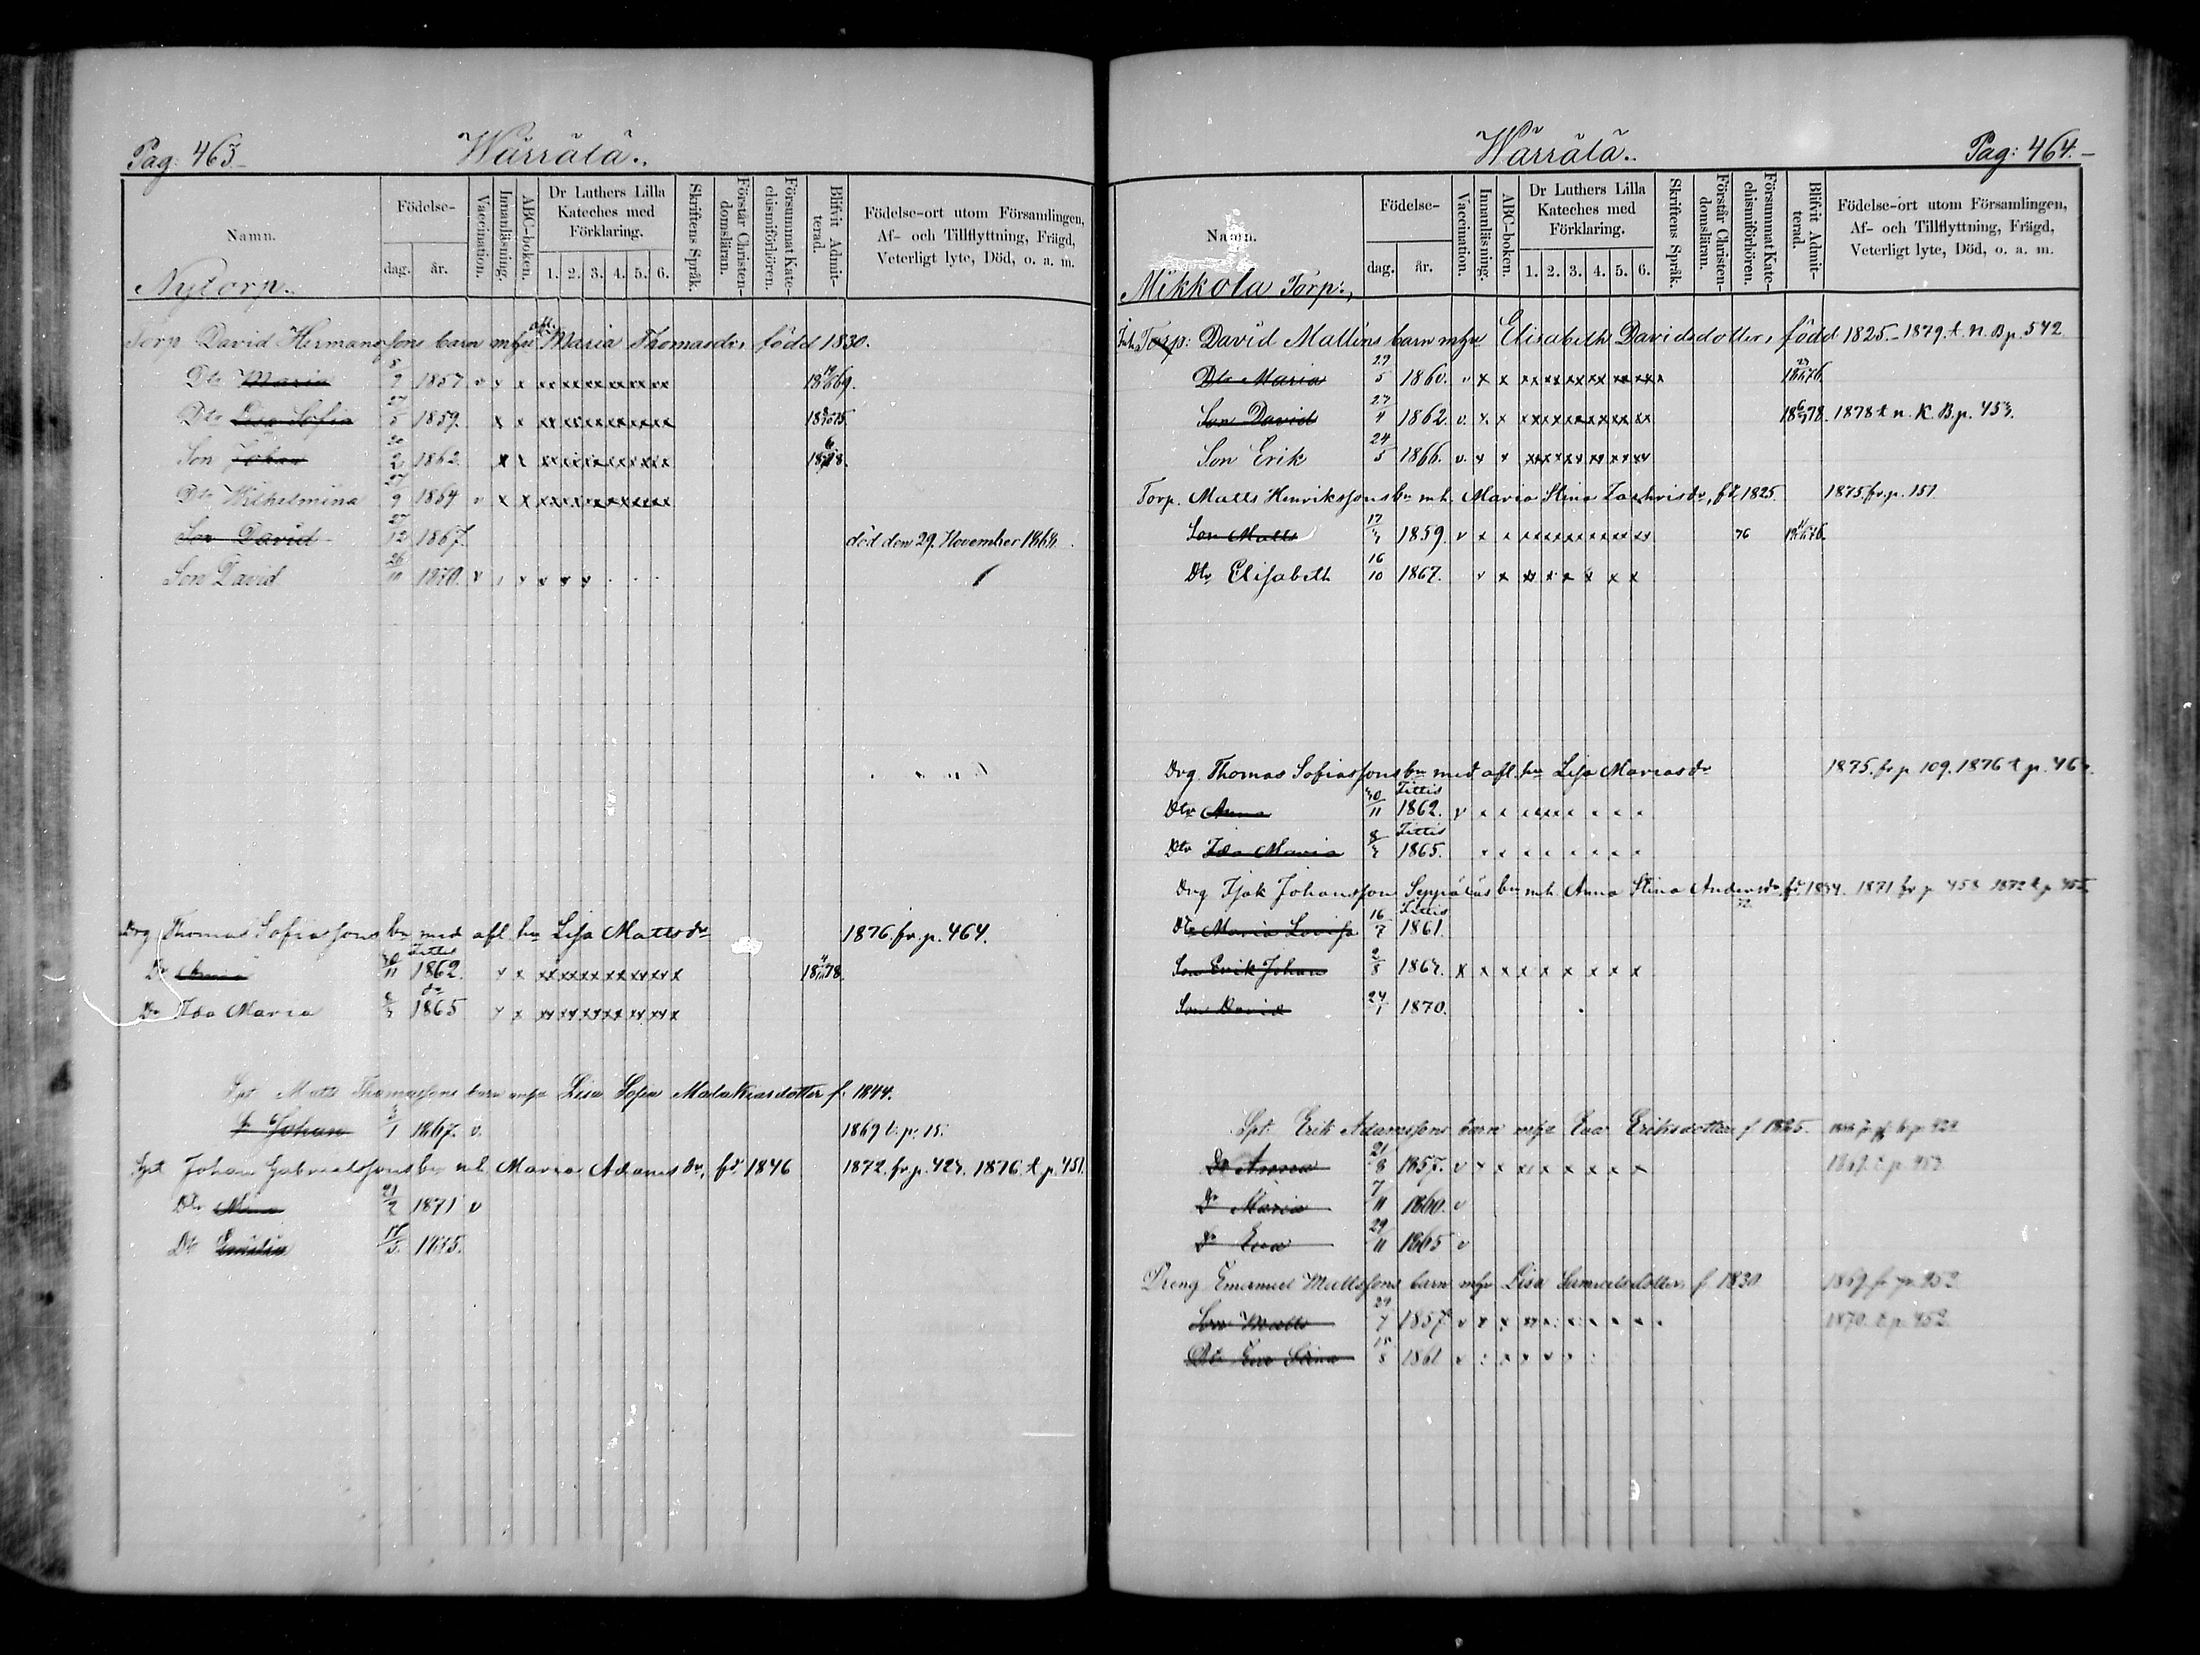 Pag: 463.
Wärrälä.
Namn.
Födelse-
dag.
år.
Vaccination.
Innanläsning.
ABC-boken.
Dr Luthers Lilla Kateches med Förklaring.
1. 2. 3. 4. 5. 6.
Skriftens Språk.
Förstår Christendomsläran.
Försummat Katechismiförhören.
Blifvit Admitterad.
Födelse-ort utom Församlingen,
Af- och Tillflyttning, Frägd,
Veterligt lyte, Död, o. a. m.
Nytorp.
Torp David Hermanssons barn mhu Maria Thomasdr född 1830.
Dtr Maria 1857 v x x
Dtr Lisa Sofia 27/5 1859. x x
Son Johan 20/2 1862 x x
Dtr Wilhelmina 27/9 1864 v x x
Son David 27/12 1867. död den 29. November 1868.
Son David 26/11 1870. v
Drg Thomas Sofiassons bn med afl. hu Lisa Mattsdr 1876. fr. p. 464.
Dr Anna 30/11 Tittis 1862.
Dr Ida Maria 1865
Spt. Matts Thomassons barn mhu Lisa Sofia Malakiasdotter f. 1844.
Johan 1867. v. 1869 t. p. 15.
Spt Johan Gabrielssons bn mh. Maria Adamsdr, fd 1846 1872. fr. p. 424. 1876. t. p. 451.
Dtr 21/2 1871 v
Dtr Emilia 1875.
Wärrälä.
Pag: 464.
Namn.
Födelse-
dag.
år.
Vaccination.
Innanläsning.
ABC-boken.
Dr Luthers Lilla Kateches med Förklaring.
1. 2. 3. 4. 5. 6.
Skriftens Språk.
Förstår Christendomsläran.
Försummat Katechismiförhören.
Blifvit Admitterad.
Födelse-ort utom Församlingen,
Af- och Tillflyttning, Frägd,
Veterligt lyte, Död, o. a. m.
Mikkola Torp.
Torp: David Mattsens barn mhu Elisabeth Davidsdotter, född 1825. 1879. t. N. B p. 542
Dtr Maria 27/5 1860. v x x
Son David 27/4 1862. v. x x 1878 t n. K. B. p. 453.
Son Erik 24/5 1866. v. x x
Torp. Matts Henrikssons bn mh. Maria Stina Zachrisdr, fd. 1825. 1875 fr. p. 151
Son Matts 1859. v x x 76
Dtr Elisabeth 16/10 1867. x x
Drg. Thomas Sofiassons bn med afl. hu Lisa Mariasdr 1875. fr. p. 109. 1876 t. p. 463.
Dtr Anna 30/11 Tittis 1862. v
Dtr Ida Maria Tittis 1865.
Drg Isak Johansson Seppäläs bn mh. Anna Stina Andersdr fd 1834. 1871 fr p. 458
Dtr Maria Lovisa 16/7 Tittis 1861.
Son Erik Johan 2/8 1864.
Son David 24/1 1870.
Spt. Erik Adamssons barn mhu Eva Eriksdotter f 1825.
Dr Anna 21/8 1857. v
Dr Maria 7/11 1860. v
Dr Eva 29/11 1865 v
Dreng Emanuel Mattssons barn mhu Lisa Samuelsdotter f 1830 1869. fr. p. 452
Son Matts 1857 v 1870. t. p. 452.
Dtr Eva Stina 15/8 1861 v